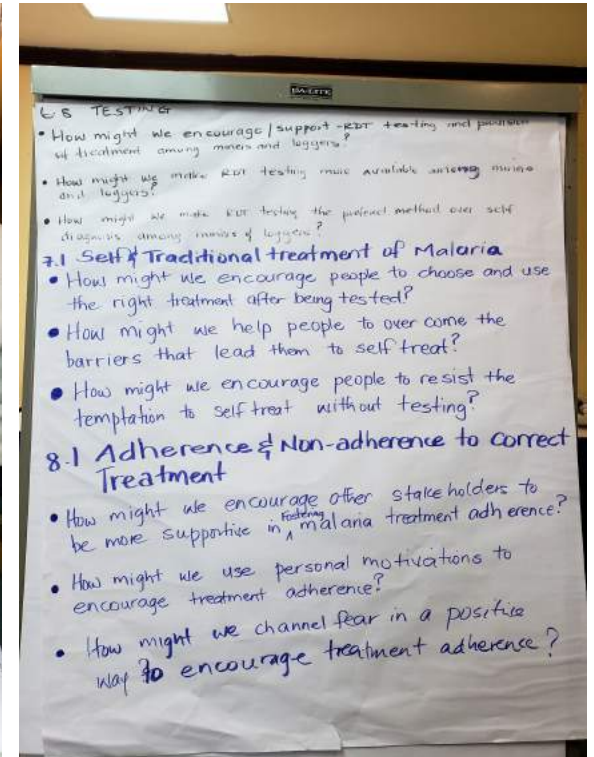 DA-LITE
6.8 TESTING
• How might we encourage/support -RDT testing and provision
of treatment among miners and loggers?
• How might we make RDT testing more available among miners
and loggers?
• How might we make RDT testing the prefered method over self
diagnosis among miners & loggers?
7.1 Self & Traditional treatment of Malaria
• How might we encourage people to choose and use
the right treatment after being tested?
• How might we help people to over come the
barriers that lead them to self treat?
• How might we encourage people to resist the
temptation to self treat without testing?
8.1 Adherence & Non-adherence to correct
Treatment
• How might we encourage other stakeholders to
be more supportive in fostering malaria treatment adherence?
• How might we use personal motivations to
encourage treatment adherence?
• How might we channel fear in a positive
way to encourage treatment adherence?